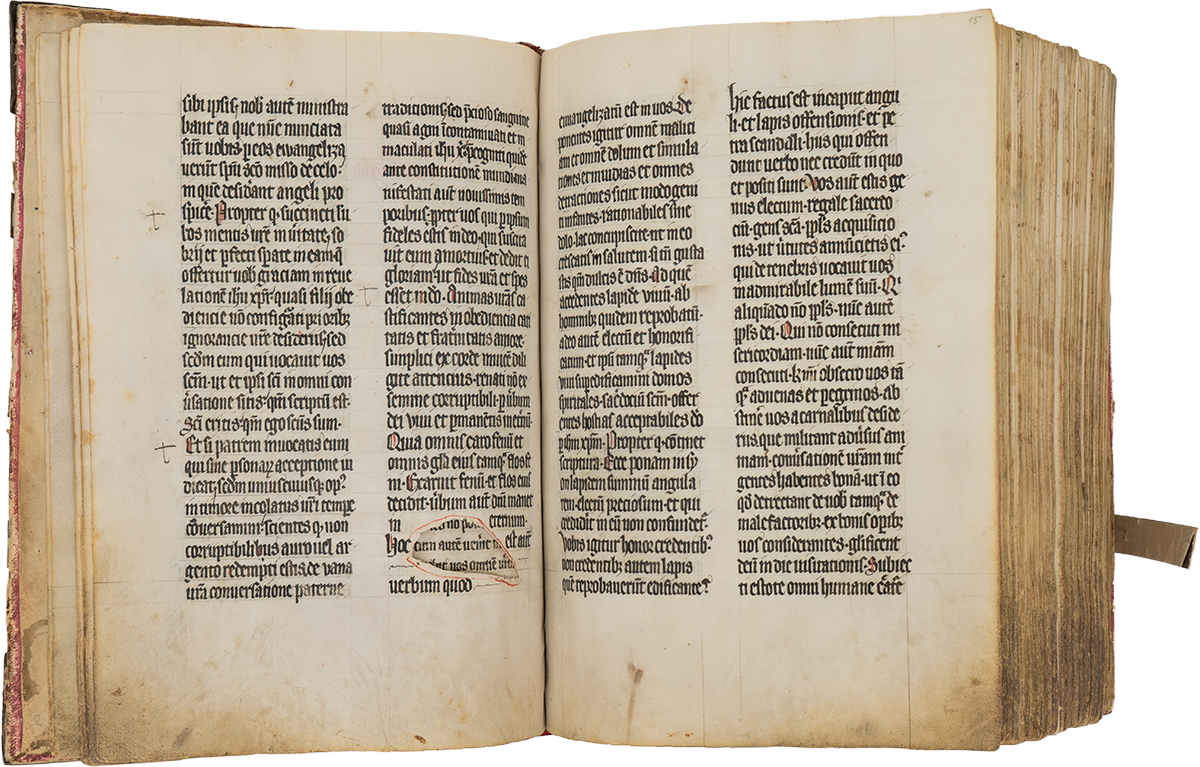 sibi ipsis nob aute ministra
bant ea que nuc nunciata
sut uobis p eos ewangeliza
uerut spu sco misso de celo
in que desidant angeli pro
spice. Propter q succincti lu
bos mentis ure in uitate so
brij et perfecti sperate in eam q
offertur uob graciam in reue
latione ihu xpi quasi filij obe
diencie no configurati priorib
ignorancie ure desiderijs sed
sedm eum qui uocauit uos
scm ut et ipsi sci in omni con
usatione sitis qm scriptu est
Sci eritis qm ego scus sum
Et si patrem inuocatis eum
qui sine psonar acceptione iu
dicat sedm uniuscuiusq op
in timore incolatus uri tempe
conuersamini scientes q non
corruptibilibus auro uel ar
gento redempti estis de uana
ura conuersatione paterne
tradicionis sed precioso sanguine
quasi agni incontaminati et in
maculati ihu xpi pcogniti quide
ante constitutionem mundi ma
nifestati aut nouissimis tem
poribus ppter uos qui p ipsum
fideles estis in deo qui suscita
uit eum a mortuis et dedit ei
gloriam ut fides ura et spes
esset in deo. Animas uras ca
stificantes in obediencia cari
tatis et fraternitatis amore
simplici ex corde inuice dili
gite attencius renati no ex
semine corruptibili p uerbum
dei uiui et pmanentis in eternu
Quia omnis caro fenu et
omnis gla eius tamq flos fe
ni. Exaruit fenu et flos eius
decidit uerbum aut dni manet
in eternum
Hoc est aut
cum aute uenit
uos omne
verbum quod
15
euuangelizatu est in uos. De
ponentes igitur omne malici
am et omne dolum et simula
tiones et inuidias et omnes
detractiones sicut modo geni
ti infantes rationabiles sine
dolo lac concupiscite ut in eo
crescatis in salutem si tn gusta
stis qm dulcis e dns. Ad que
accedentes lapide uiuu ab
hominib quidem reprobatu
a deo aute electu et honorifi
catum et ipsi tamq lapides
uiui superedificamini domos
spirituales sacerdociu scm offer
entes hostias acceptabiles do
p ihm xpm. Propter q continet
scriptura. Ecce ponam in sy
on lapidem summu angula
rem electum preciosum et qui
crediderit in eu non confundet
Vobis igitur honor credentib
non credentib autem lapis
que reprobauerunt edificante
hic factus est in caput angu
li et lapis offensionis et pe
tra scandali hiis qui offen
dunt uerbo nec credunt in quo
et positi sunt. Vos aut estis ge
nus electum regale sacerdo
ciu gens sca ppls acquisicio
nis ut uirtutes annuncietis ei
qui de tenebris uocauit uos
in admirabile lumen suu. Q
aliquado no ppls nunc aute
ppls dei. Qui non consecuti mi
sericordiam nunc aut miam
consecuti kmi obsecro uos ta
q aduenas et pegrinos ab
stinere uos a carnalibus deside
riis que militant aduersus ani
mam conuersatione uram int
gentes habentes bona ut in eo
qd detrectant de uob tamq de
malefactorib ex bonis opib
uos considerantes glificent
deu in die uisitationis. Subiec
ti estote omni humane